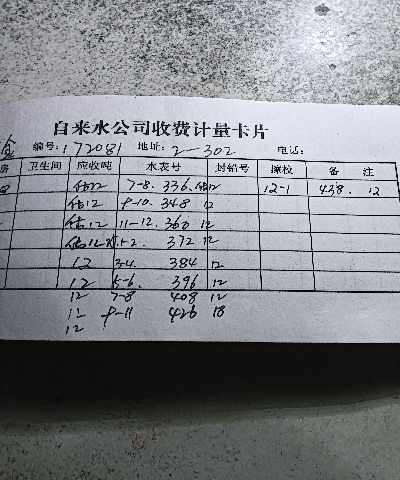 自来水公司收费计量卡片
金 编号:172081 地址:2-302 电话:
房 卫生间 应收吨 水表号 封铅号 原校 备 注
估12 7-8. 336. 估12 12-1 438. 12
估12 9-10. 348 12
估12 11-12. 360 12
估12 1-2. 372 12
12 3-4. 384 12
12 5-6. 396 12
12 7-8 408 12
12 9-11 426 18
12